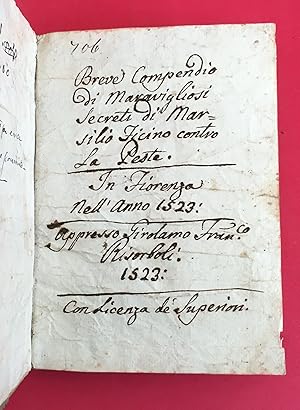 706
Breve Compendio
di Maravigliosi
Secreti di Mar=
silio Ficino contro
La Peste.
In Fiorenza
Nell' Anno 1523:
Appresso Girolamo Fran.co
Risorboli.
1523:
Con Licenza de' Superiori.